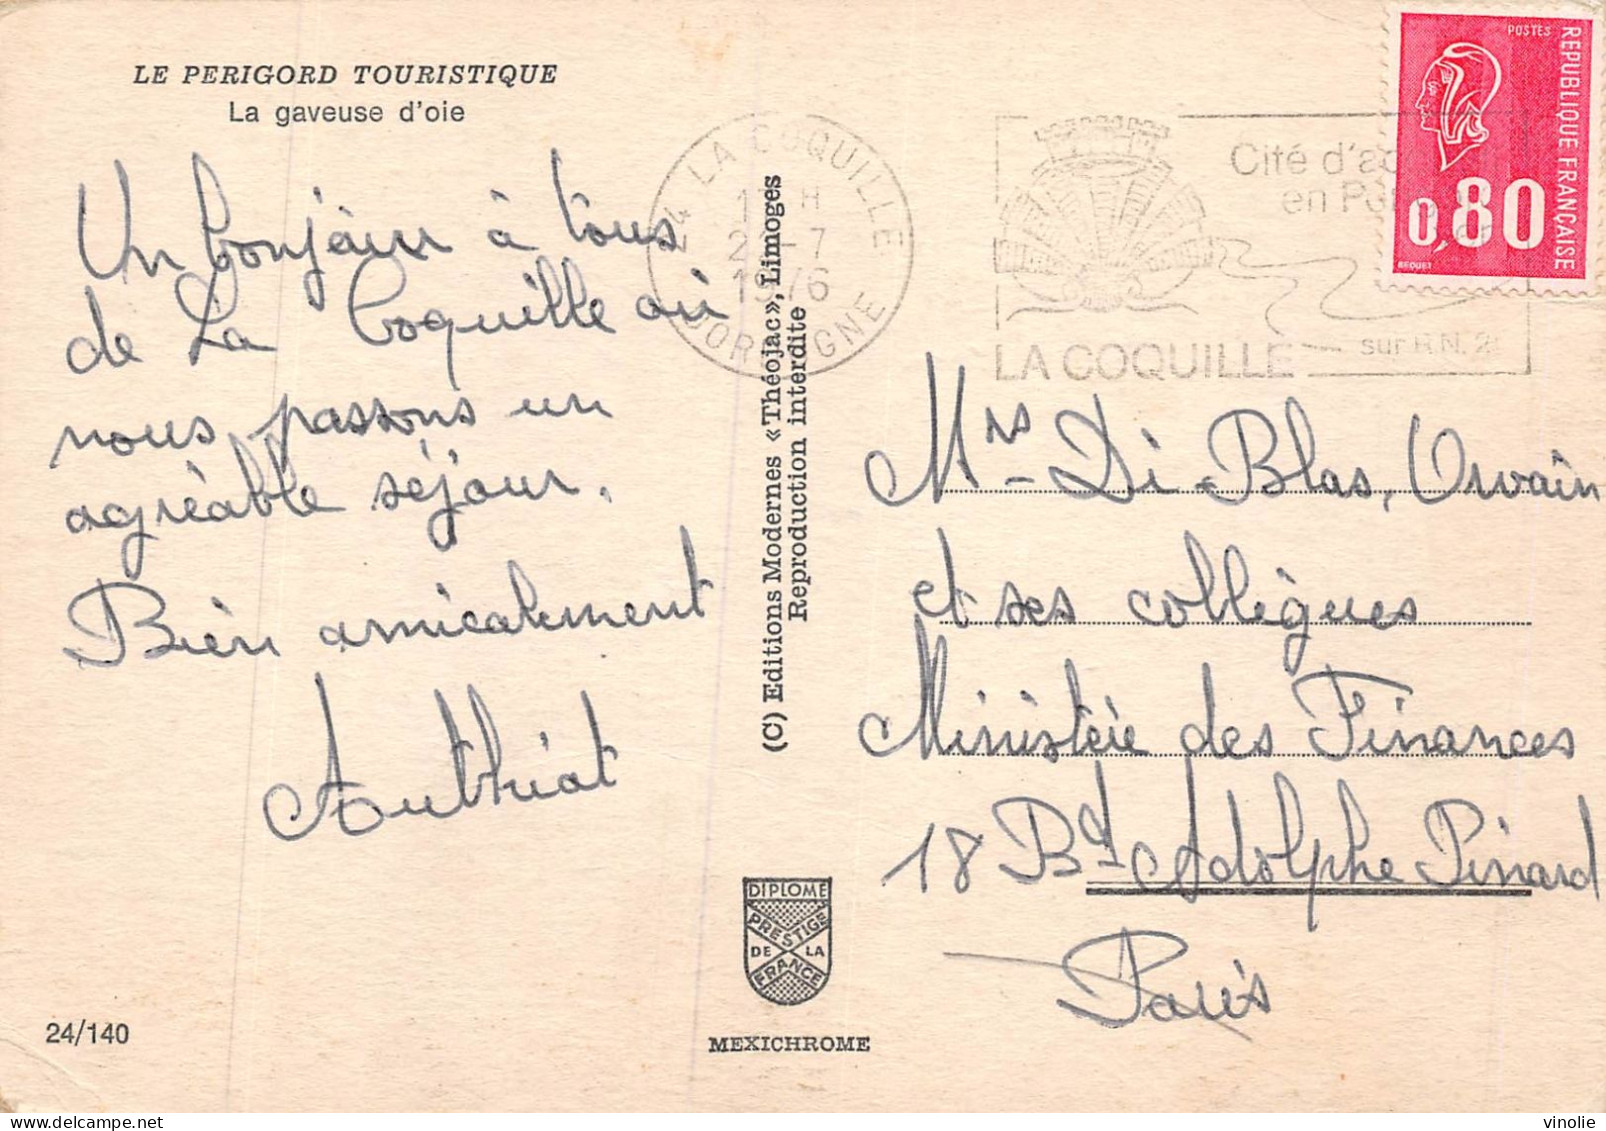 LE PERIGORD TOURISTIQUE
La gaveuse d'oie
Un bonjour à tous
de La Coquille où
nous passons un
agréable séjour.
Bien amicalement
Authiat
24/140
(C) Editions Modernes «Théojac», Limoges
Reproduction interdite
DIPLOME
PRESTIGE
DE LA
FRANCE
MEXICHROME
LA COQUILLE
H
-7
1976
DORDOGNE
Cité d'
en
LA COQUILLE
sur R.N. 2
POSTES
REPUBLIQUE FRANÇAISE
0,80
BEQUET
Mrs - Di-Blas, Urvain
et ses collègues
Ministère des Finances
18 Bd Adolphe Pinard
Paris
vinolie